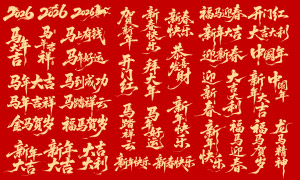 2026
2026
2026
马年大吉
马年吉祥
马上有钱
马年好运
马年大吉
马到成功
马年吉祥
马踏祥云
金马贺岁
福马贺岁
新年大吉
大吉大利
贺新年
新年快乐
新春快乐
恭喜发财
开门红
拜大年
马踏祥云
马年好运
新年快乐
新年快乐
新春快乐
福马迎春
新年大吉
迎新春
迎新春
新年快乐
大吉大利
福马迎春
开门红
大吉大利
中国年
中国年
新年大吉
福马贺岁
龙马精神